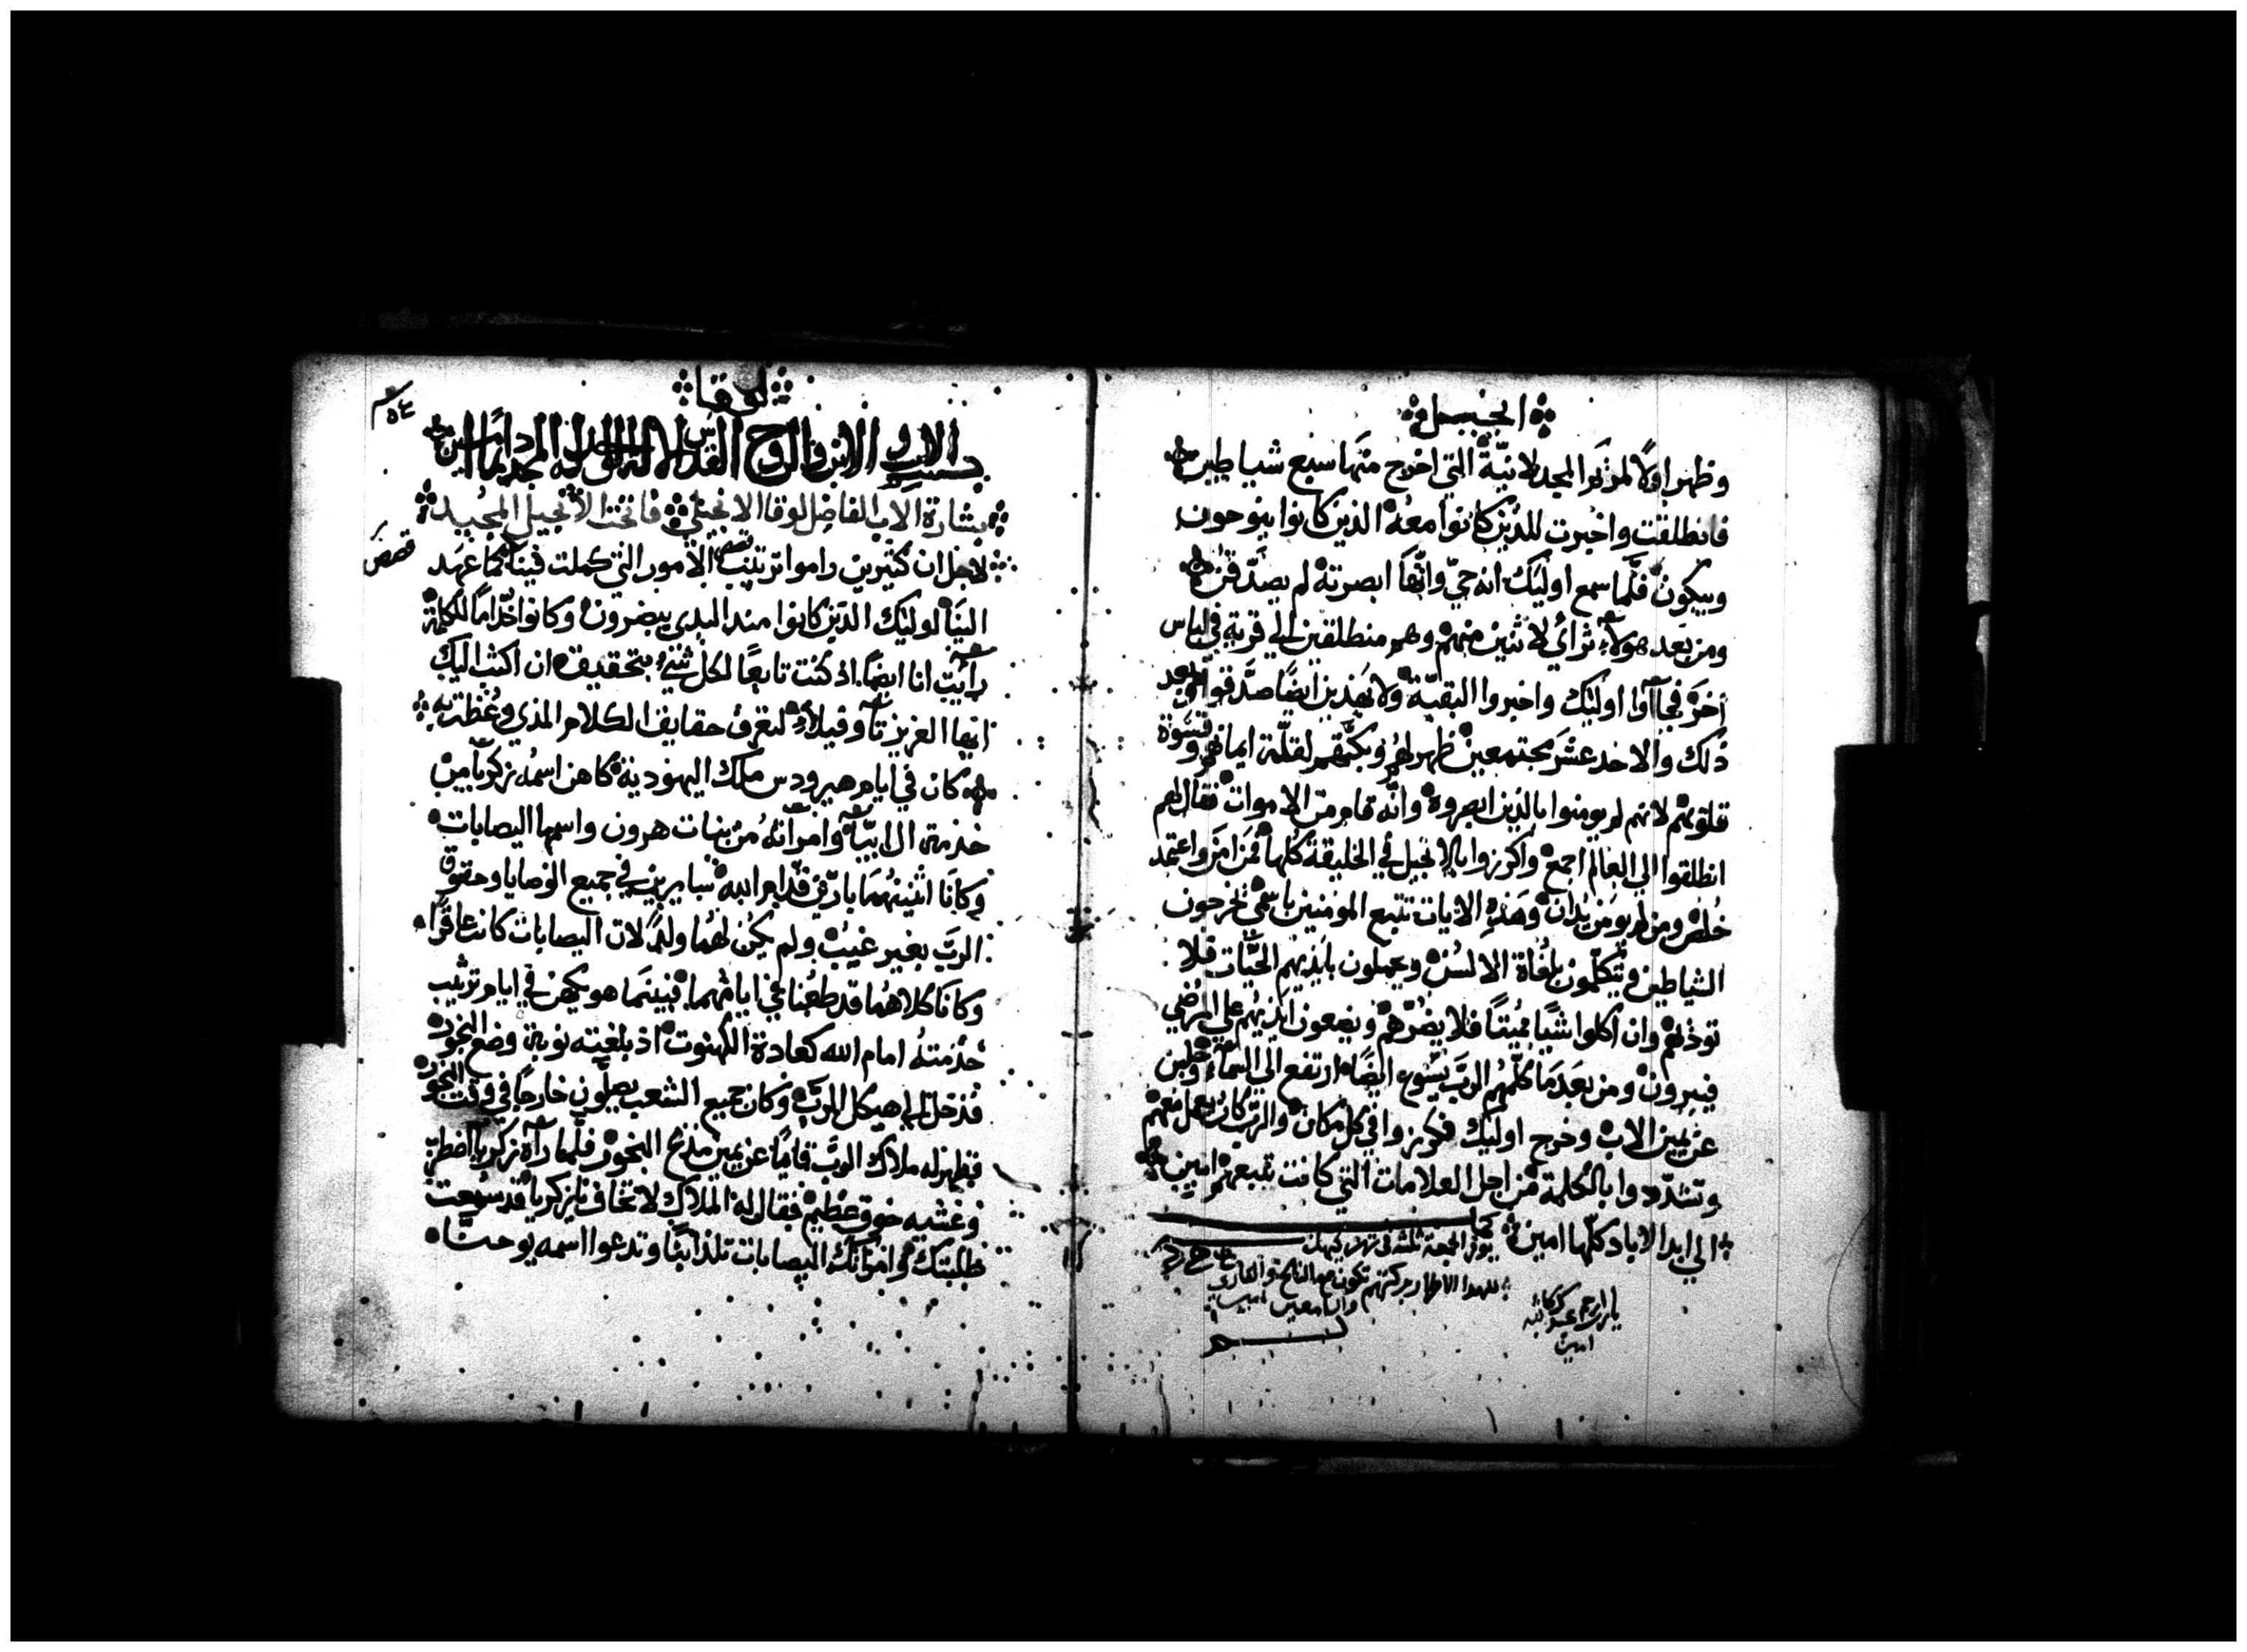 انجيل
وظهر اولاً لمريم المجدلانيّة التي اخرج منها سبع شياطين
فانطلقت واخبرت للذين كانوا معه الذين كانوا ينوحون
ويبكون فلّما سمع اوليك انه حيّ وانّها ابصرته لم يصدّقون
ومن بعد هولاء تراي لاثنين منهم وهم منطلقين الي قرية في لباس
اخر فجآاوا اوليك واخبروا البقيّة ولا بهذين ايضًا صدّقوا وبعد
ذلك والاحد عشر مجتمعين ظهر لهم وبكّتهم لقلّة ايمانهم وقسوة
قلوبهم لانهم لم يومنوا بالذين ابصروه وانّه قام من الاموات فقال لهم
انطلقوا الي العالم اجمع واكرزوا بالانجيل في الخليقة كلها فمن امن واعتمد
خلص ومن لم يومن يدان وهذه الايات تتبع المومنين باسمي يخرجون
الشياطين ويتكلّمون بلغاة الالسن ويحملون بايديهم الحيّات فلا
توذيهم وان اكلوا شيًا مميتًا فلا يضرّهم ويضعون ايديهم علي المرضي
فيبرون ومن بعد ما كلّمهم الربّ يسّوع ايضًا ارتفع الي السمآء وجلس
عن يمين الاب وخرج اوليك فكرزوا في كل مكان والربّ كان يعمل معهم
وتشدّدوا بالكلمة من اجل العلامات التي كانت تتبعهم امين
الي ابد الاباد كلّها امين
يا رب ارحم
امين
لوقا
٥٤
بسم الاب والابن والروح القدس الاله
بشارة الاب الفاضل لوقا الانجيلي فاتحت الانجيل المجيد
لاجل ان كثيرين راموا ترتيب قصص الامور التي كملت فينا كما عهد
قصص
الينا لوليك الذين كانوا منذ البدي يبصرون وكانوا خدّامًا للكلمة
رأيت انا ايضًا اذ كنت تابعًا لكل شيء بتحقيق ان اكتب اليك
ايها العزيز تآوفيلا لتعرف حقايق الكلام الذي وعظت به
كان في ايام هيرودس ملك اليهودية كاهن اسمه زكريآ من
خدمة ال ابيّا وامرآته من بنات هرون واسمها اليصابات
وكانا اثنينهما بارّين قدّام الله سايرين في جميع الوصايا وحقوق
الربّ بغير عيب ولم يكن لهما ولد لان اليصابات كانت عاقرًا
وكانا كلاهما قد طعنا في ايامهما فبينما هو يكهن في ايام ترتيب
خدمته امام الله كعادة الكهنوت اذ بلغته نوبة وضع البخور
فدخل الي هيكل الربّ وكان جميع الشعب يصلّون خارجًا في وقت البخور
فظهر له ملاك الربّ قايمًا عن يمين مذبح البخور فلّما رآه زكريآ اضطرب
وغشيه خوف عظيم فقال له الملاك لا تخاف يا زكريا قد سمعت
طلبتك وامرآتك اليصابات تلد ابنًا وتدعوا اسمه يوحنّا